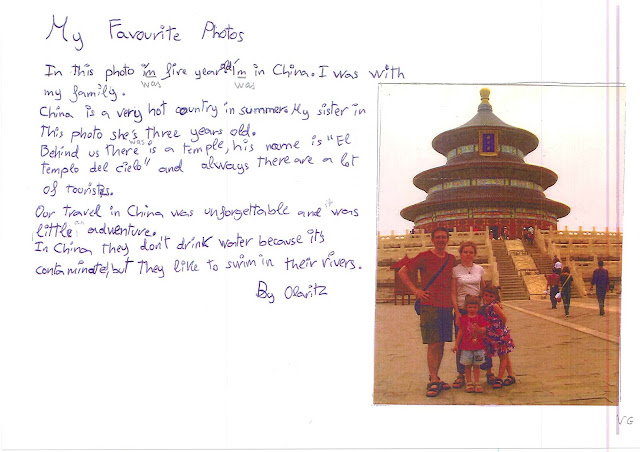 My Favourite Photos
In this photo i'm five year old I'm in China. I was with
was was
my family.
China is a very hot country in summer. My sister in
this photo she's three years old.
was
Behind us there is a temple, his name is "El
templo del cielo" and always there are a lot
of tourists.
Our travel in China was unforgettable and it was
little an adventure.
In China they don't drink water because it's
contaminate, but they like to swim in their rivers.
By Olaritz
VG